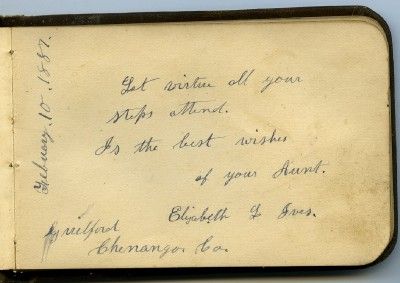 Febuary. 10. 1887.
Let virtue all your
steps attend.
Is the best wishes
of your Aunt.
Elizabeth L Ives.
Guilford
Chenango. Co.